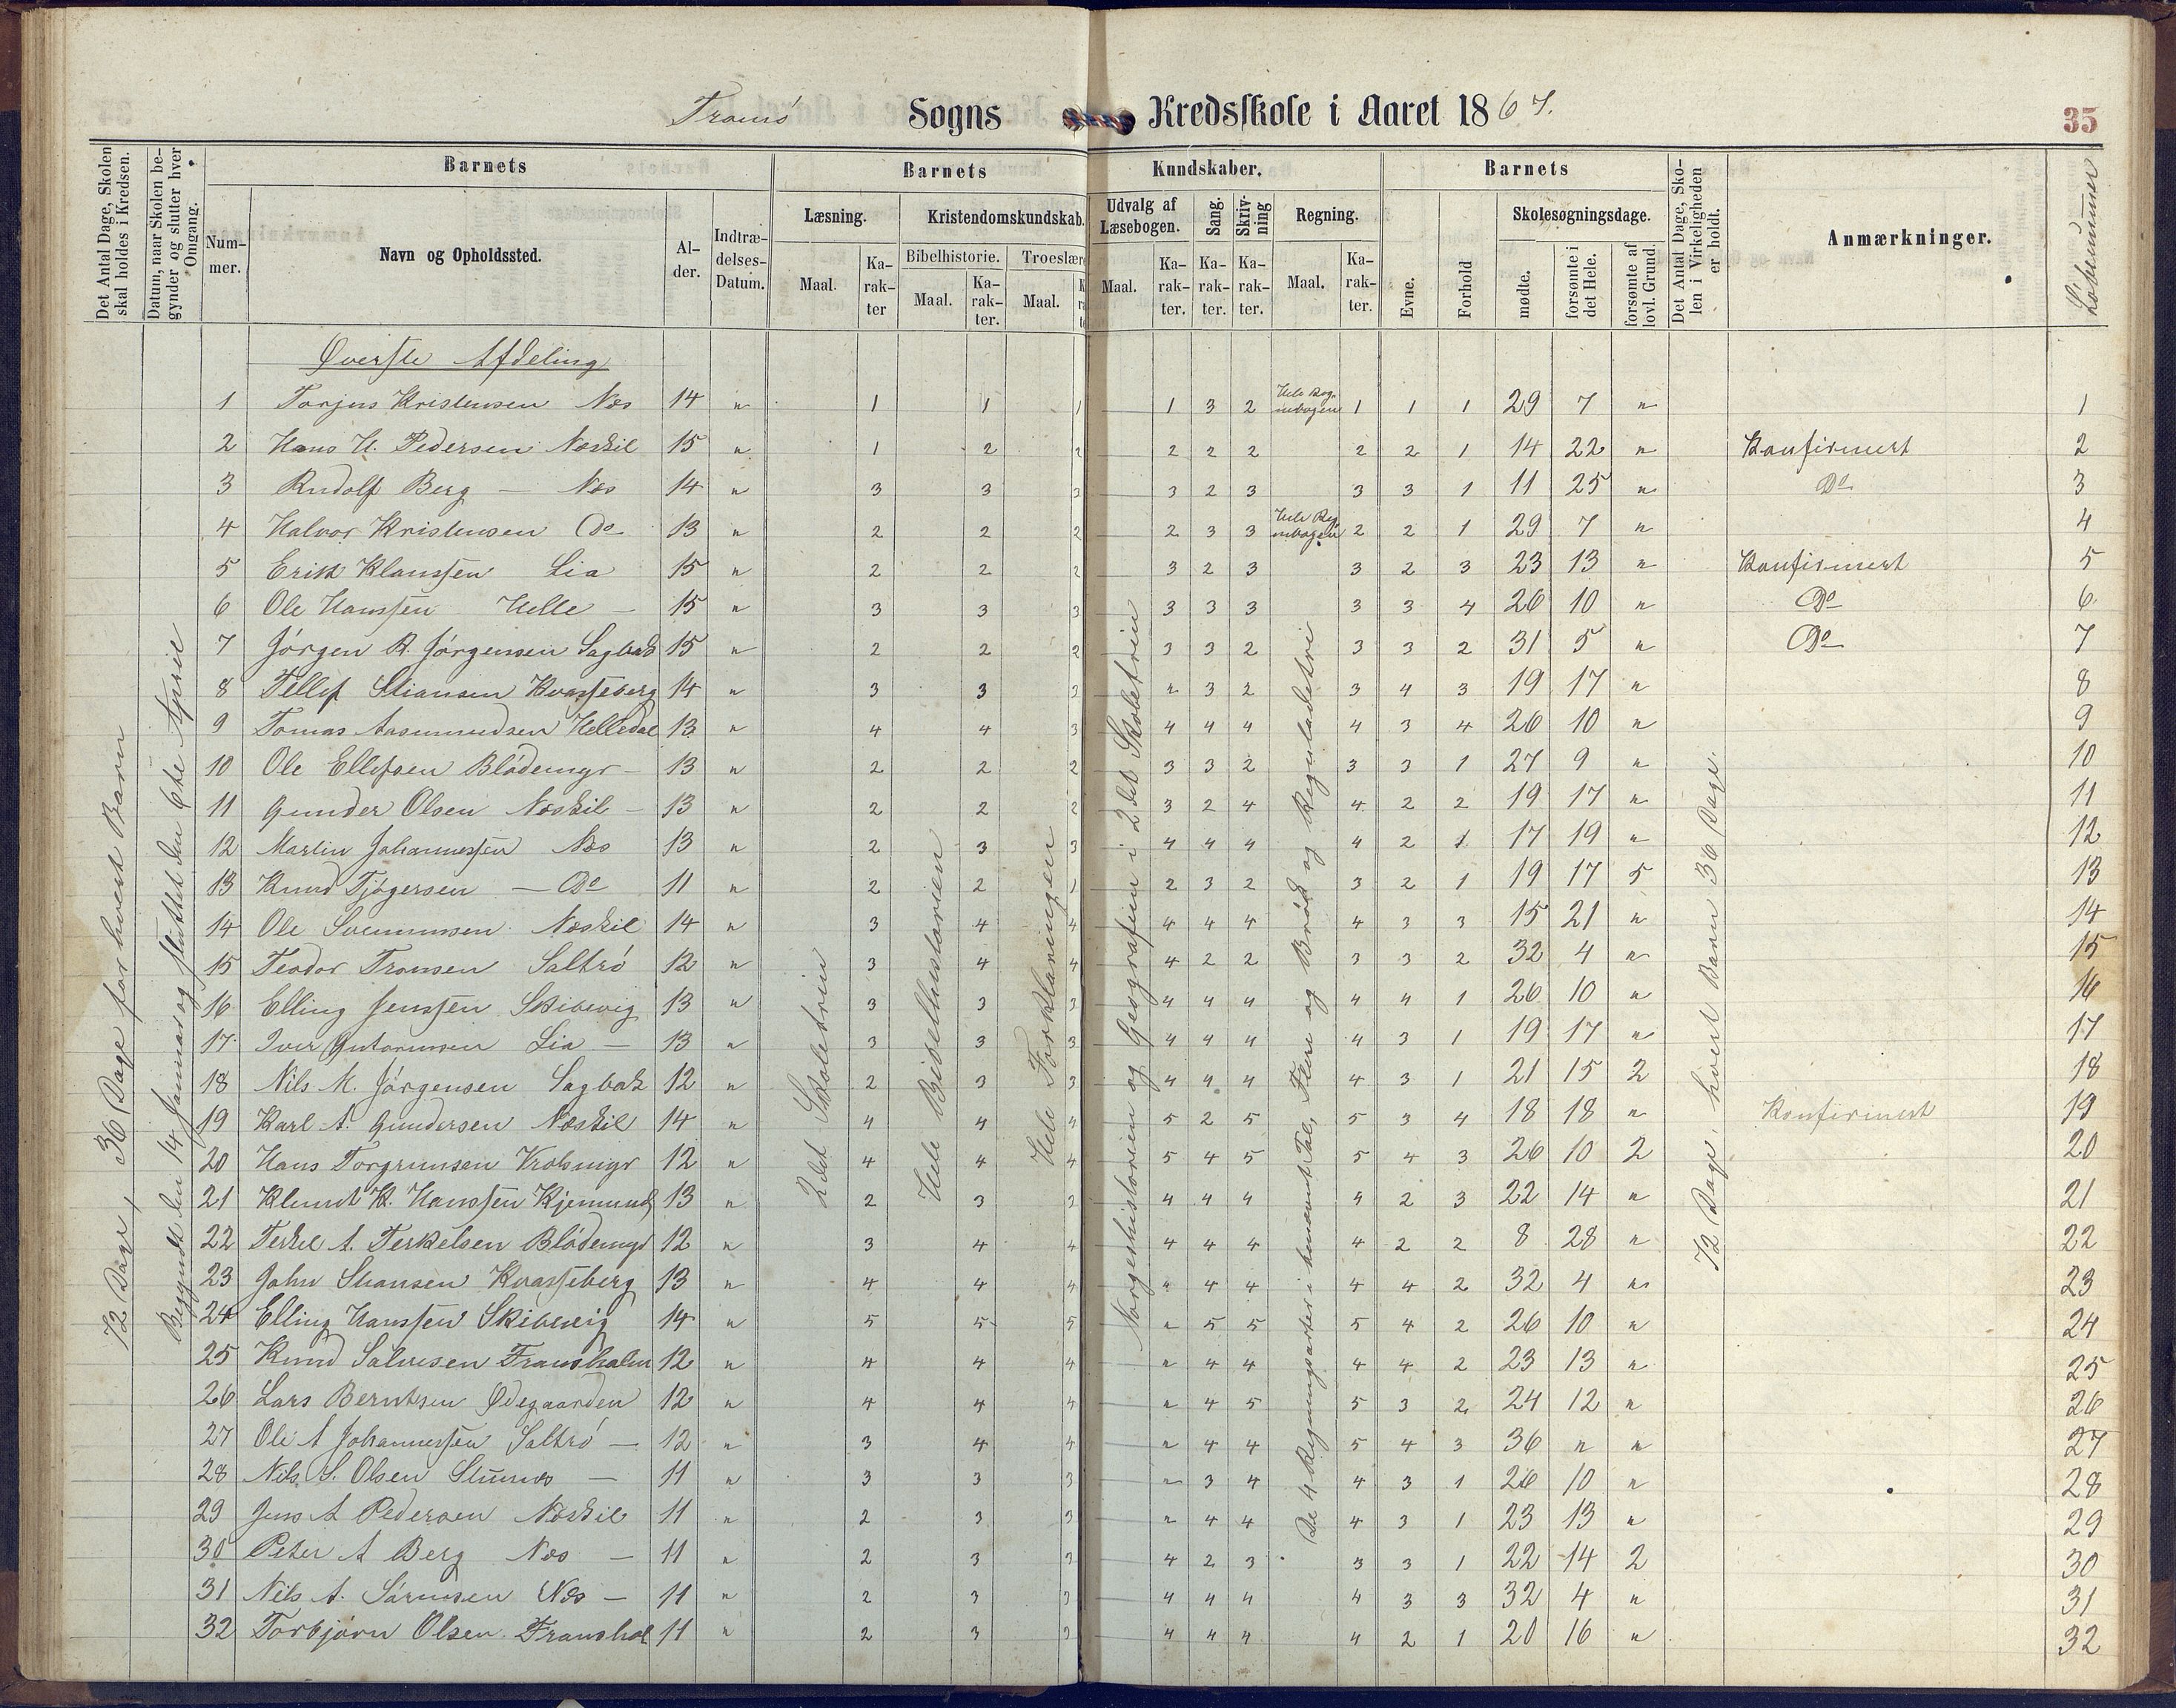 Tromø Sogns Kredsskole i Aaret 1867.
35
Det Antal Dage, Skolen skal holdes i Kredsen.
Datum, naar Skolen begynder og slutter hver Omgang.
Barnets
Nummer.
Navn og Opholdssted.
Alder.
Indtrædelses-Datum.
Barnets Kundskaber.
Læsning.
Maal.
Karakter
Kristendomskundskab.
Bibelhistorie.
Maal.
Karakter.
Troeslære
Maal.
Udvalg af Læsebogen.
Maal.
Karakter.
Sang.
Karakter.
Skrivning
Karakter.
Regning.
Maal.
Karakter.
Barnets
Evne.
Forhold
Skolesøgningsdage.
mødte.
forsømte i det Hele.
forsømte af lovl. Grund.
Det Antal Dage, Skolen i Virkeligheden er holdt.
Anmærkninger.
Løbenummer
72 Dage, 36 Dage for hvert Barn
Begyndt den 14 Januar og sluttet den 6te April
2det Skoletrin
Hele Bibelhistorien
Hele Forklaringen
Norgeshistorien og Geografien i 2det Skoletrin
De 4 Regningsarter i benævnt Tal, Flere og Brøk og Reguladetri
72 Dage, hvert Barn 36 Dage.
Øverste Afdeling
1 Torjus Kristensen Næs 14 " 1 1 1 1 3 2 Hele Regnebogen 1 1 1 29 7 " 1
2 Hans H. Pedersen Næskil 15 " 1 2 2 2 2 2 2 2 1 14 22 " Konfirmert 2
3 Rudolf Berg — Næs 14 " 3 3 3 3 2 3 3 3 1 11 25 " Do 3
4 Halvor Kristensen Do 13 " 2 2 2 2 3 3 Hele Regnebogen 2 2 1 29 7 " 4
5 Erik Klaussen Lia 15 " 2 2 2 3 2 3 3 2 3 23 13 " Konfirmert 5
6 Ole Hanssen Helle — 15 " 3 3 3 3 3 3 3 3 4 26 10 " Do 6
7 Jörgen R. Jörgensen Sagbak 15 " 2 2 2 3 3 2 3 3 2 31 5 " Do 7
8 Tellef Stiansen Kvasseberg 14 " 3 3 3 " 3 2 3 4 3 19 17 " 8
9 Tomas Aasmundsen Helledal 13 " 4 4 3 4 4 4 4 3 4 26 10 " 9
10 Ole Ellefsen Blödemyr — 13 " 2 2 2 3 3 2 3 3 1 27 9 " 10
11 Gunder Olsen Næskil — 13 " 2 2 2 3 2 4 4 2 2 19 17 " 11
12 Martin Johannessen Næs 13 " 2 3 3 4 4 4 4 2 1 17 19 " 12
13 Knud Tjögersen — Do 11 " 2 2 1 2 3 2 3 2 1 19 17 5 13
14 Ole Svennunsen Næskil 14 " 3 4 4 4 4 4 4 3 3 15 21 " 14
15 Teodor Tronsen Saltrö 12 " 3 4 4 4 2 2 3 3 2 32 4 " 15
16 Elling Jenssen Skibevig 13 " 3 3 3 4 4 4 4 4 1 26 10 " 16
17 Iver Gutormsen Lia — 13 " 3 3 3 4 4 4 4 3 1 19 17 " 17
18 Nils M. Jörgensen Sagbak 12 " 2 3 3 4 4 4 4 3 1 21 15 2 18
19 Karl A. Gundersen Næskil 14 " 4 4 4 5 2 5 5 3 4 18 18 " Konfirmert 19
20 Hans Torgrimsen 12 " 4 4 4 5 4 5 5 4 3 26 10 2 20
21 K. Hanssen 13 " 2 3 3 4 4 4 4 2 3 22 14 " 21
22 Terkel A. Terkelsen Blödemyr 12 " 3 4 4 4 4 4 4 2 2 8 28 " 22
23 John Stiansen Kvasseberg 13 " 4 4 4 " 4 4 4 4 2 32 4 " 23
24 Elling Hanssen Skibevig 14 " 5 5 5 " 5 5 5 4 2 26 10 " 24
25 Knud Salvesen Fransholm 12 " 4 4 4 " 4 4 4 4 2 23 13 " 25
26 Lars Berntsen Ödegaarden 12 " 4 4 4 " 4 5 5 3 2 24 12 " 26
27 Ole A Johannessen Saltrö — 12 " 3 4 4 " 4 4 5 4 3 36 " " 27
28 Nils S. Olsen — 11 " 3 3 3 " 3 4 4 3 1 26 10 " 28
29 Jens A Pedersen Næskil 11 " 2 3 3 " 4 4 4 3 1 23 13 " 29
30 Peter A Berg Næs — 11 " 2 3 3 4 2 3 3 3 1 22 14 2 30
31 Nils A. Sörensen Næs — 11 " 2 3 3 4 4 4 4 3 3 32 4 " 31
32 Torbjörn Olsen Franshol 11 " 2 3 3 4 4 4 4 2 1 20 16 " 32